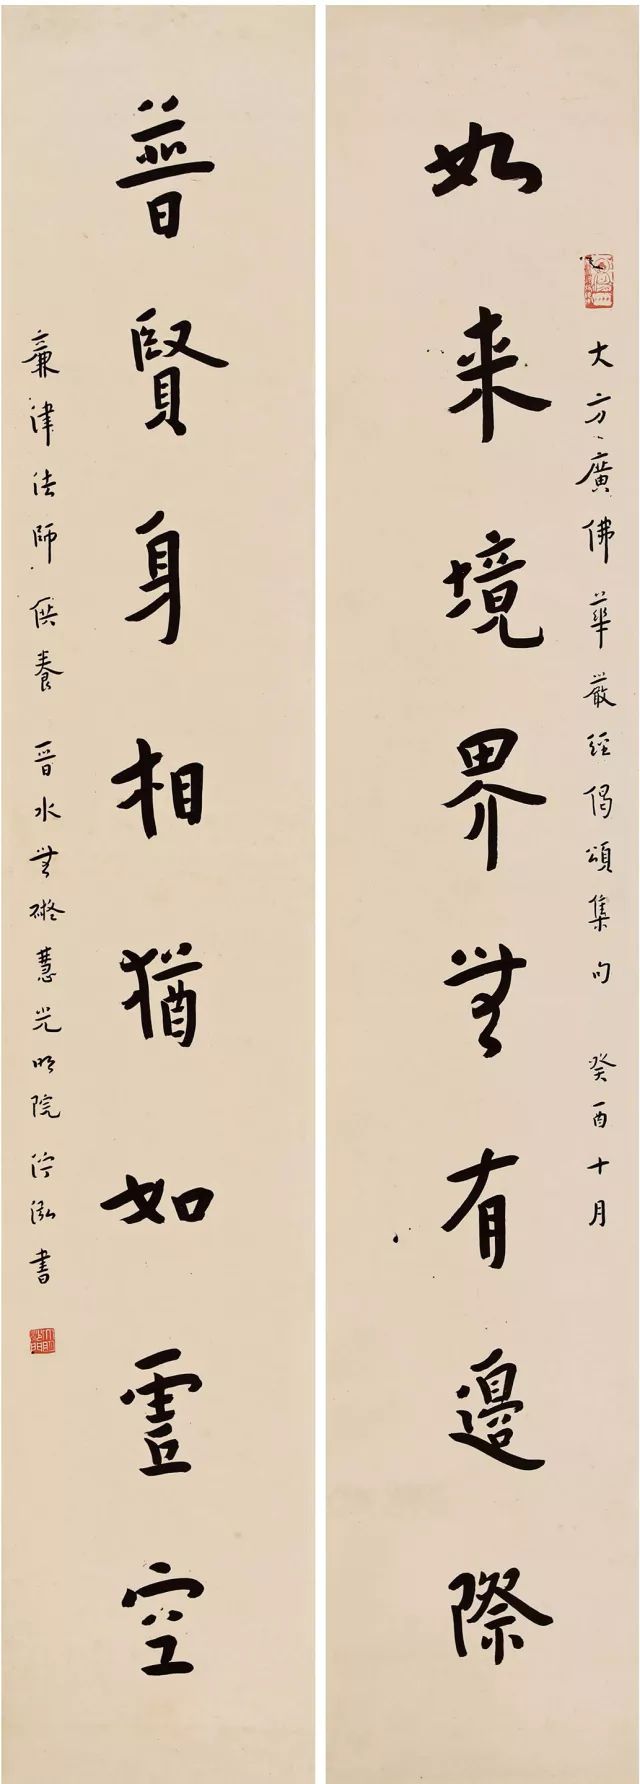 如来境界無有邊際
大方廣佛華嚴經偈頌集句 癸酉十月
普賢身相猶如虛空
亷津法師供養 晉水無礙慧光明院 泓書